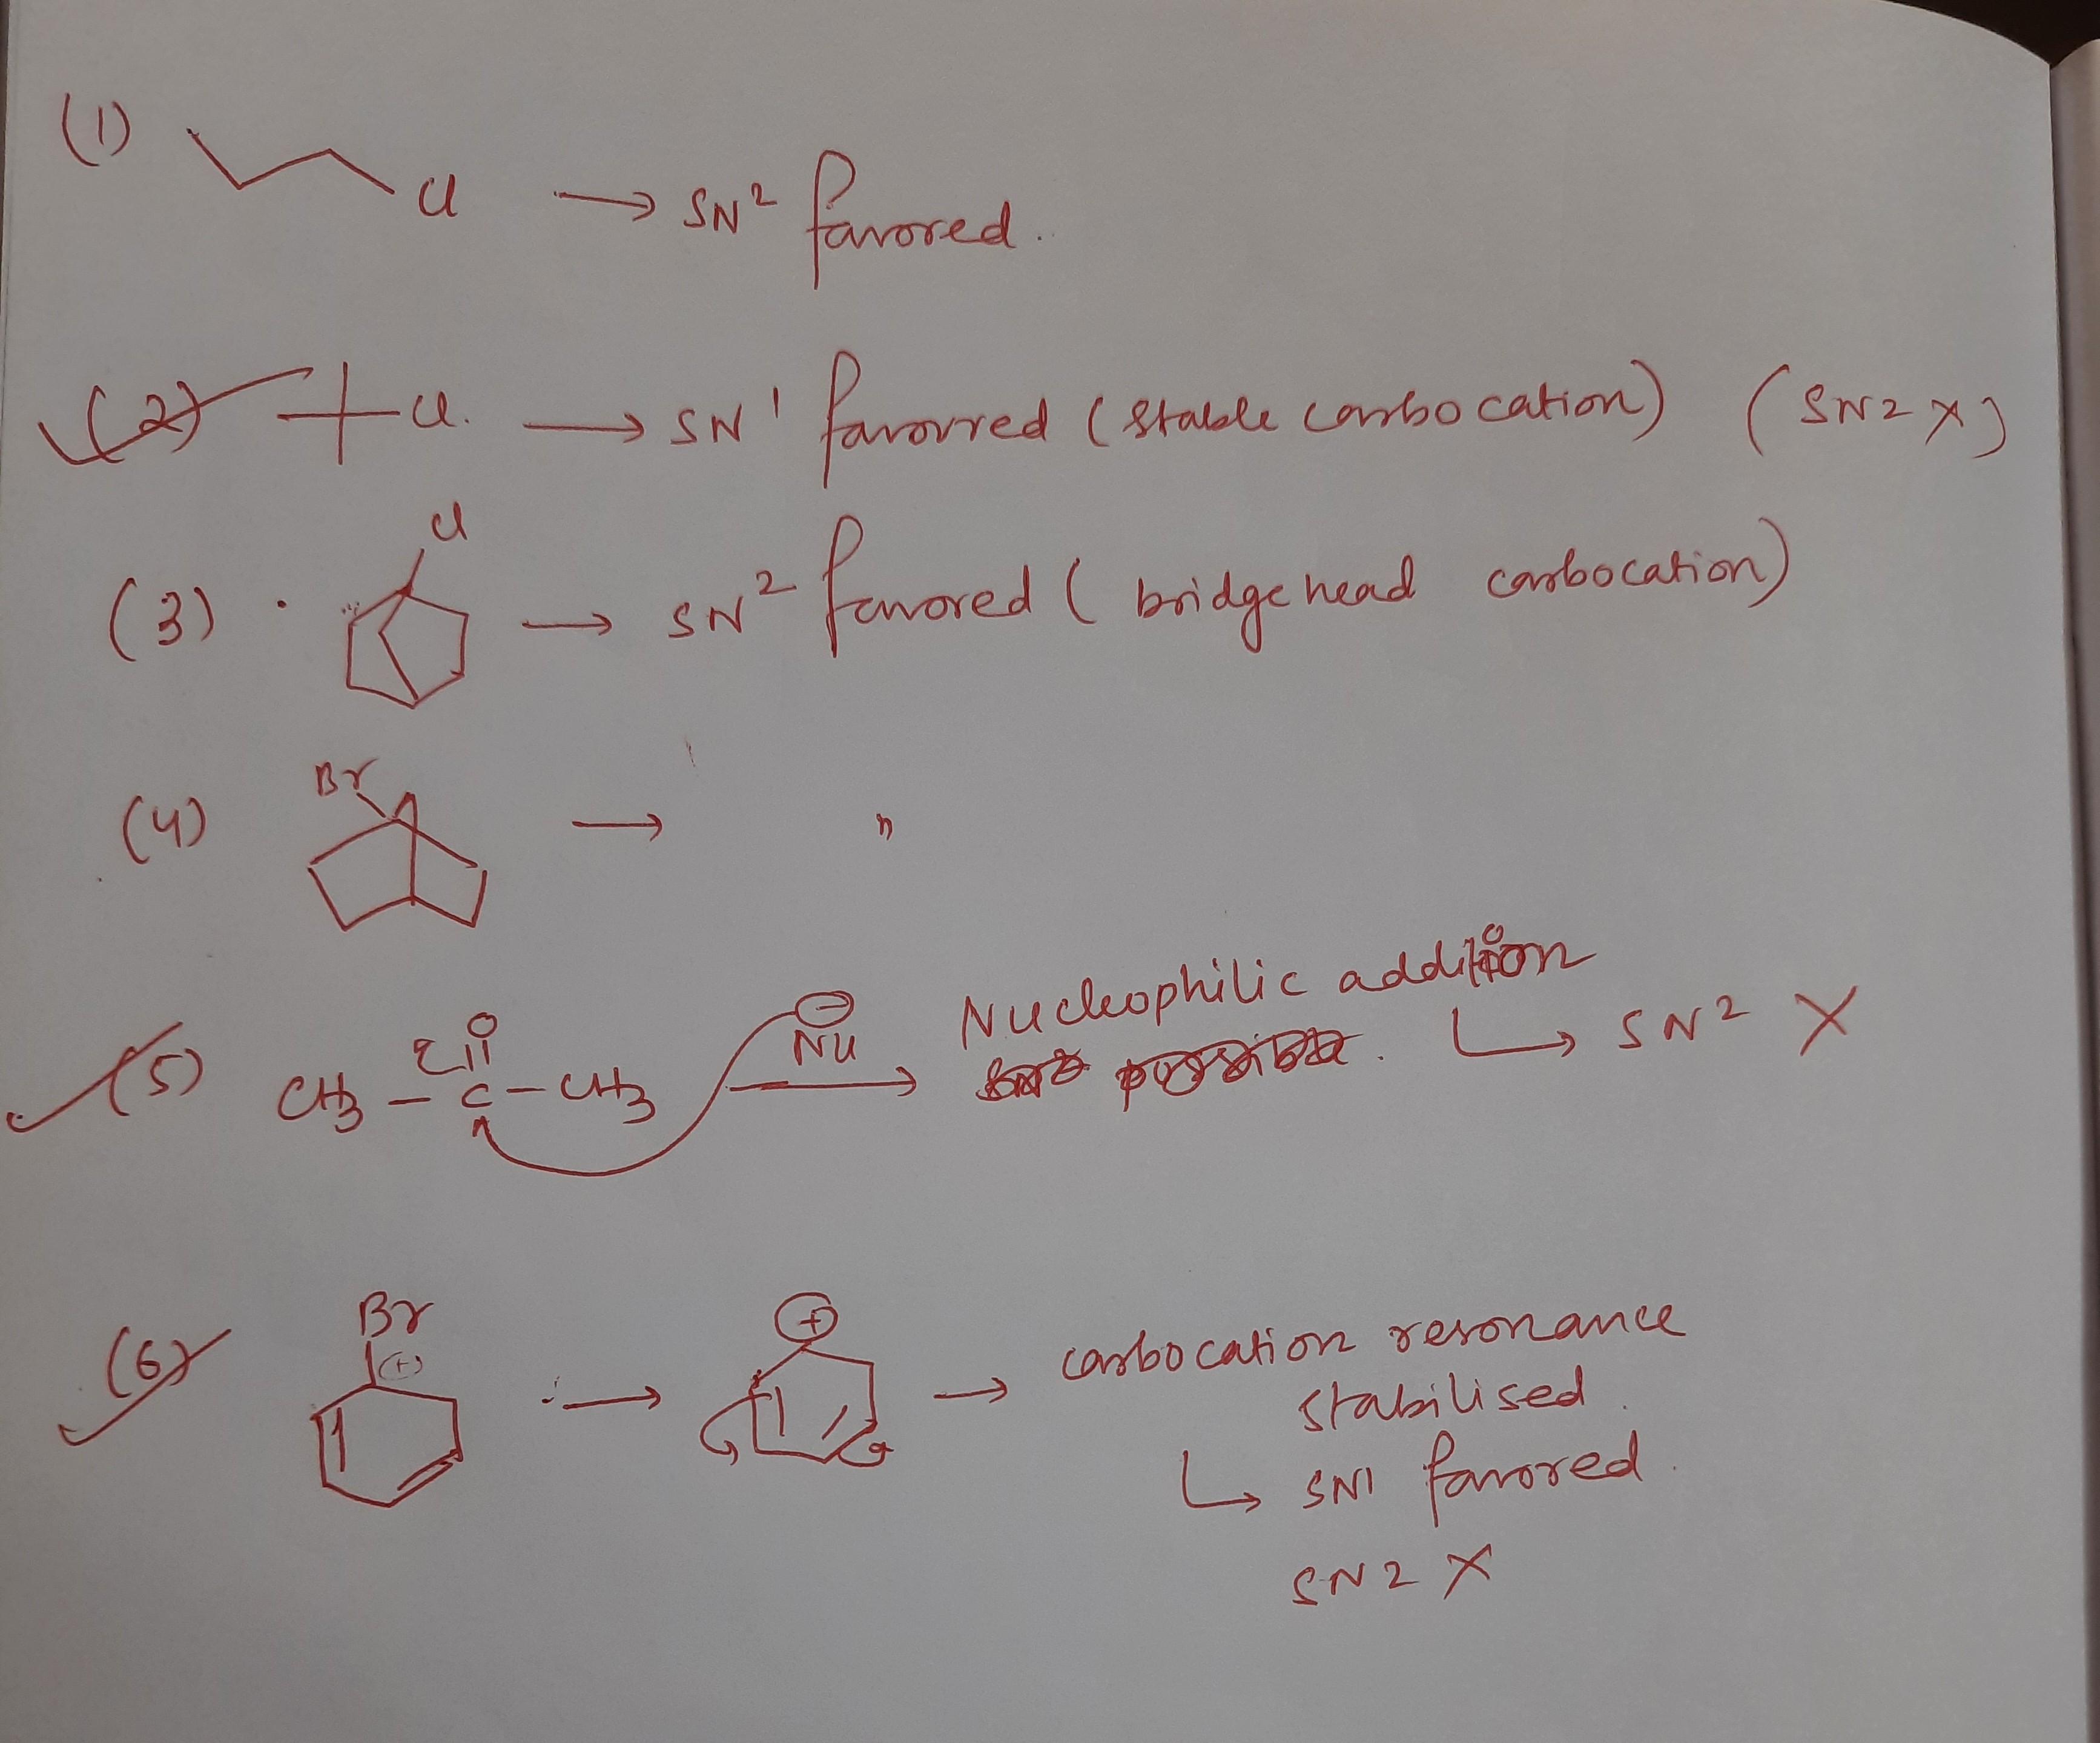 (1) Cl → SN² favored.
(2) Cl. → SN¹ favorred (stable carbocation) (SN2 X)
Cl
(3) → SN² favored (bridge head carbocation)
Br
(4) → "
Nucleophilic addition
(5) CH3 - C - CH3 Nu → ↳ SN² X
O
⊖
Br
(6) (+) → ⊕ → carbocation resonance
stabilised.
↳ SN1 favored.
SN2 X